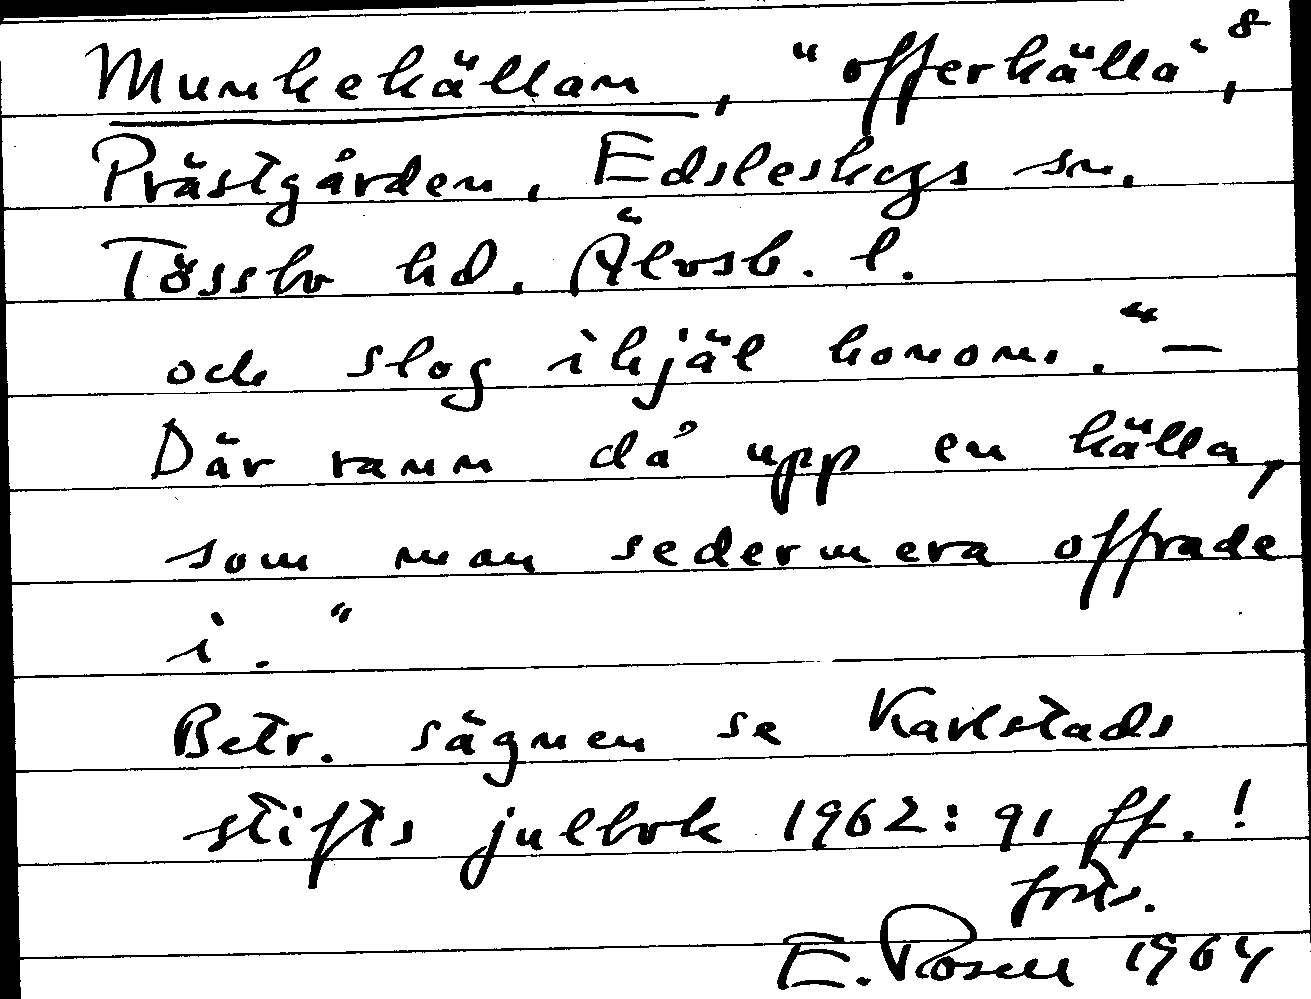 Munkekällan, "offerkälla", 8
Prästgården, Edsleskogs sn.
Tössbo hd. Älvsb. l.
och slog ihjäl honom." —
Där rann då upp en källa,
som man sedermera offrade
i."
Betr. sägnen se Karlstads
stifts julbok 1962: 91 ff.!
forts.
E. Rosell 1964